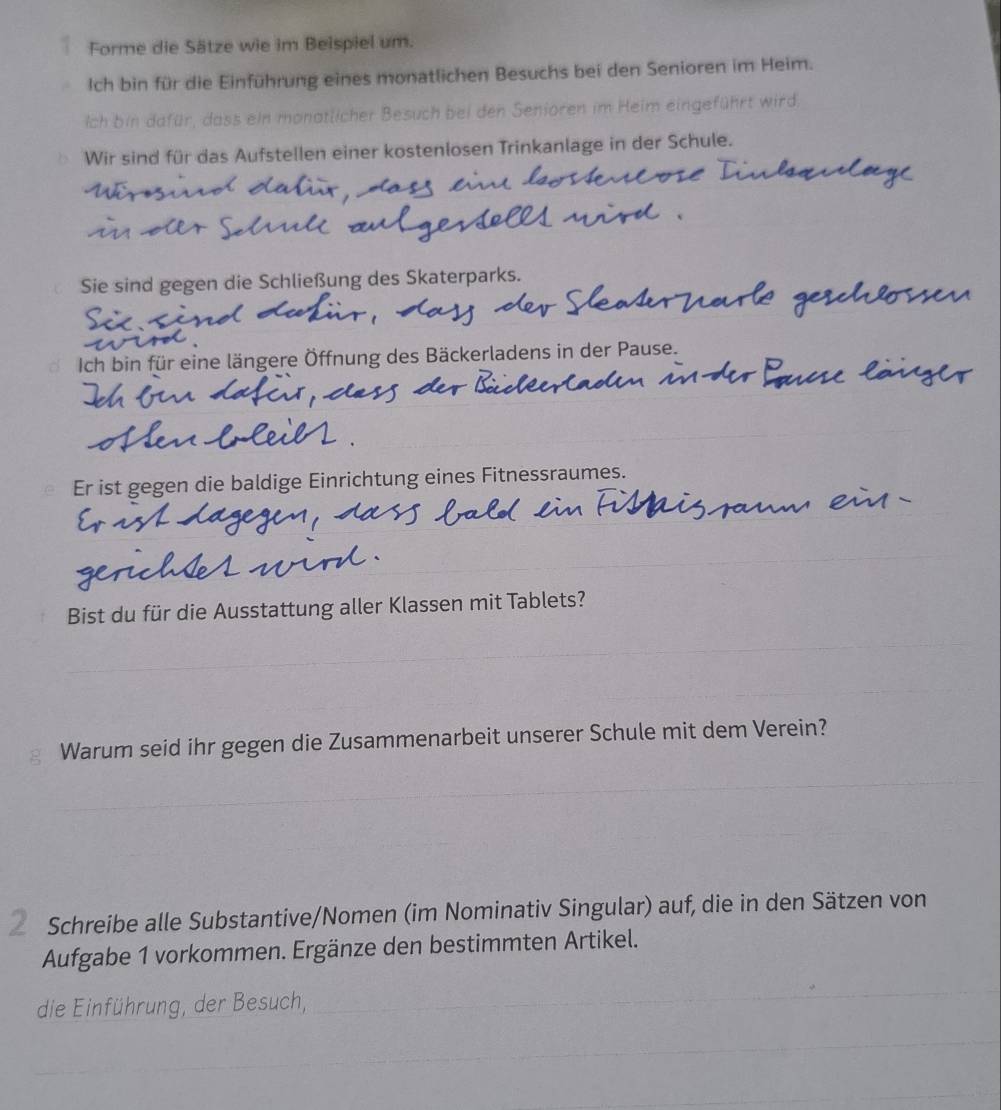 1 Forme die Sätze wie im Beispiel um.
a Ich bin für die Einführung eines monatlichen Besuchs bei den Senioren im Heim.
Ich bin dafür, dass ein monatlicher Besuch bei den Senioren im Heim eingeführt wird.
b Wir sind für das Aufstellen einer kostenlosen Trinkanlage in der Schule.
Wir sind dafür, dass eine kostenlose Tinkanlage
in der Schule aufgestellt wird.
c Sie sind gegen die Schließung des Skaterparks.
Sie sind dafür, dass der Skaterpark geschlossen
wird.
d Ich bin für eine längere Öffnung des Bäckerladens in der Pause.
Ich bin dafür, dass der Bäckerladen in der Pause länger
offen bleibt.
e Er ist gegen die baldige Einrichtung eines Fitnessraumes.
Er ist dagegen, dass bald ein Fitnisraum ein-
gerichtet wird.
f Bist du für die Ausstattung aller Klassen mit Tablets?
g Warum seid ihr gegen die Zusammenarbeit unserer Schule mit dem Verein?
2 Schreibe alle Substantive/Nomen (im Nominativ Singular) auf, die in den Sätzen von
Aufgabe 1 vorkommen. Ergänze den bestimmten Artikel.
die Einführung, der Besuch,